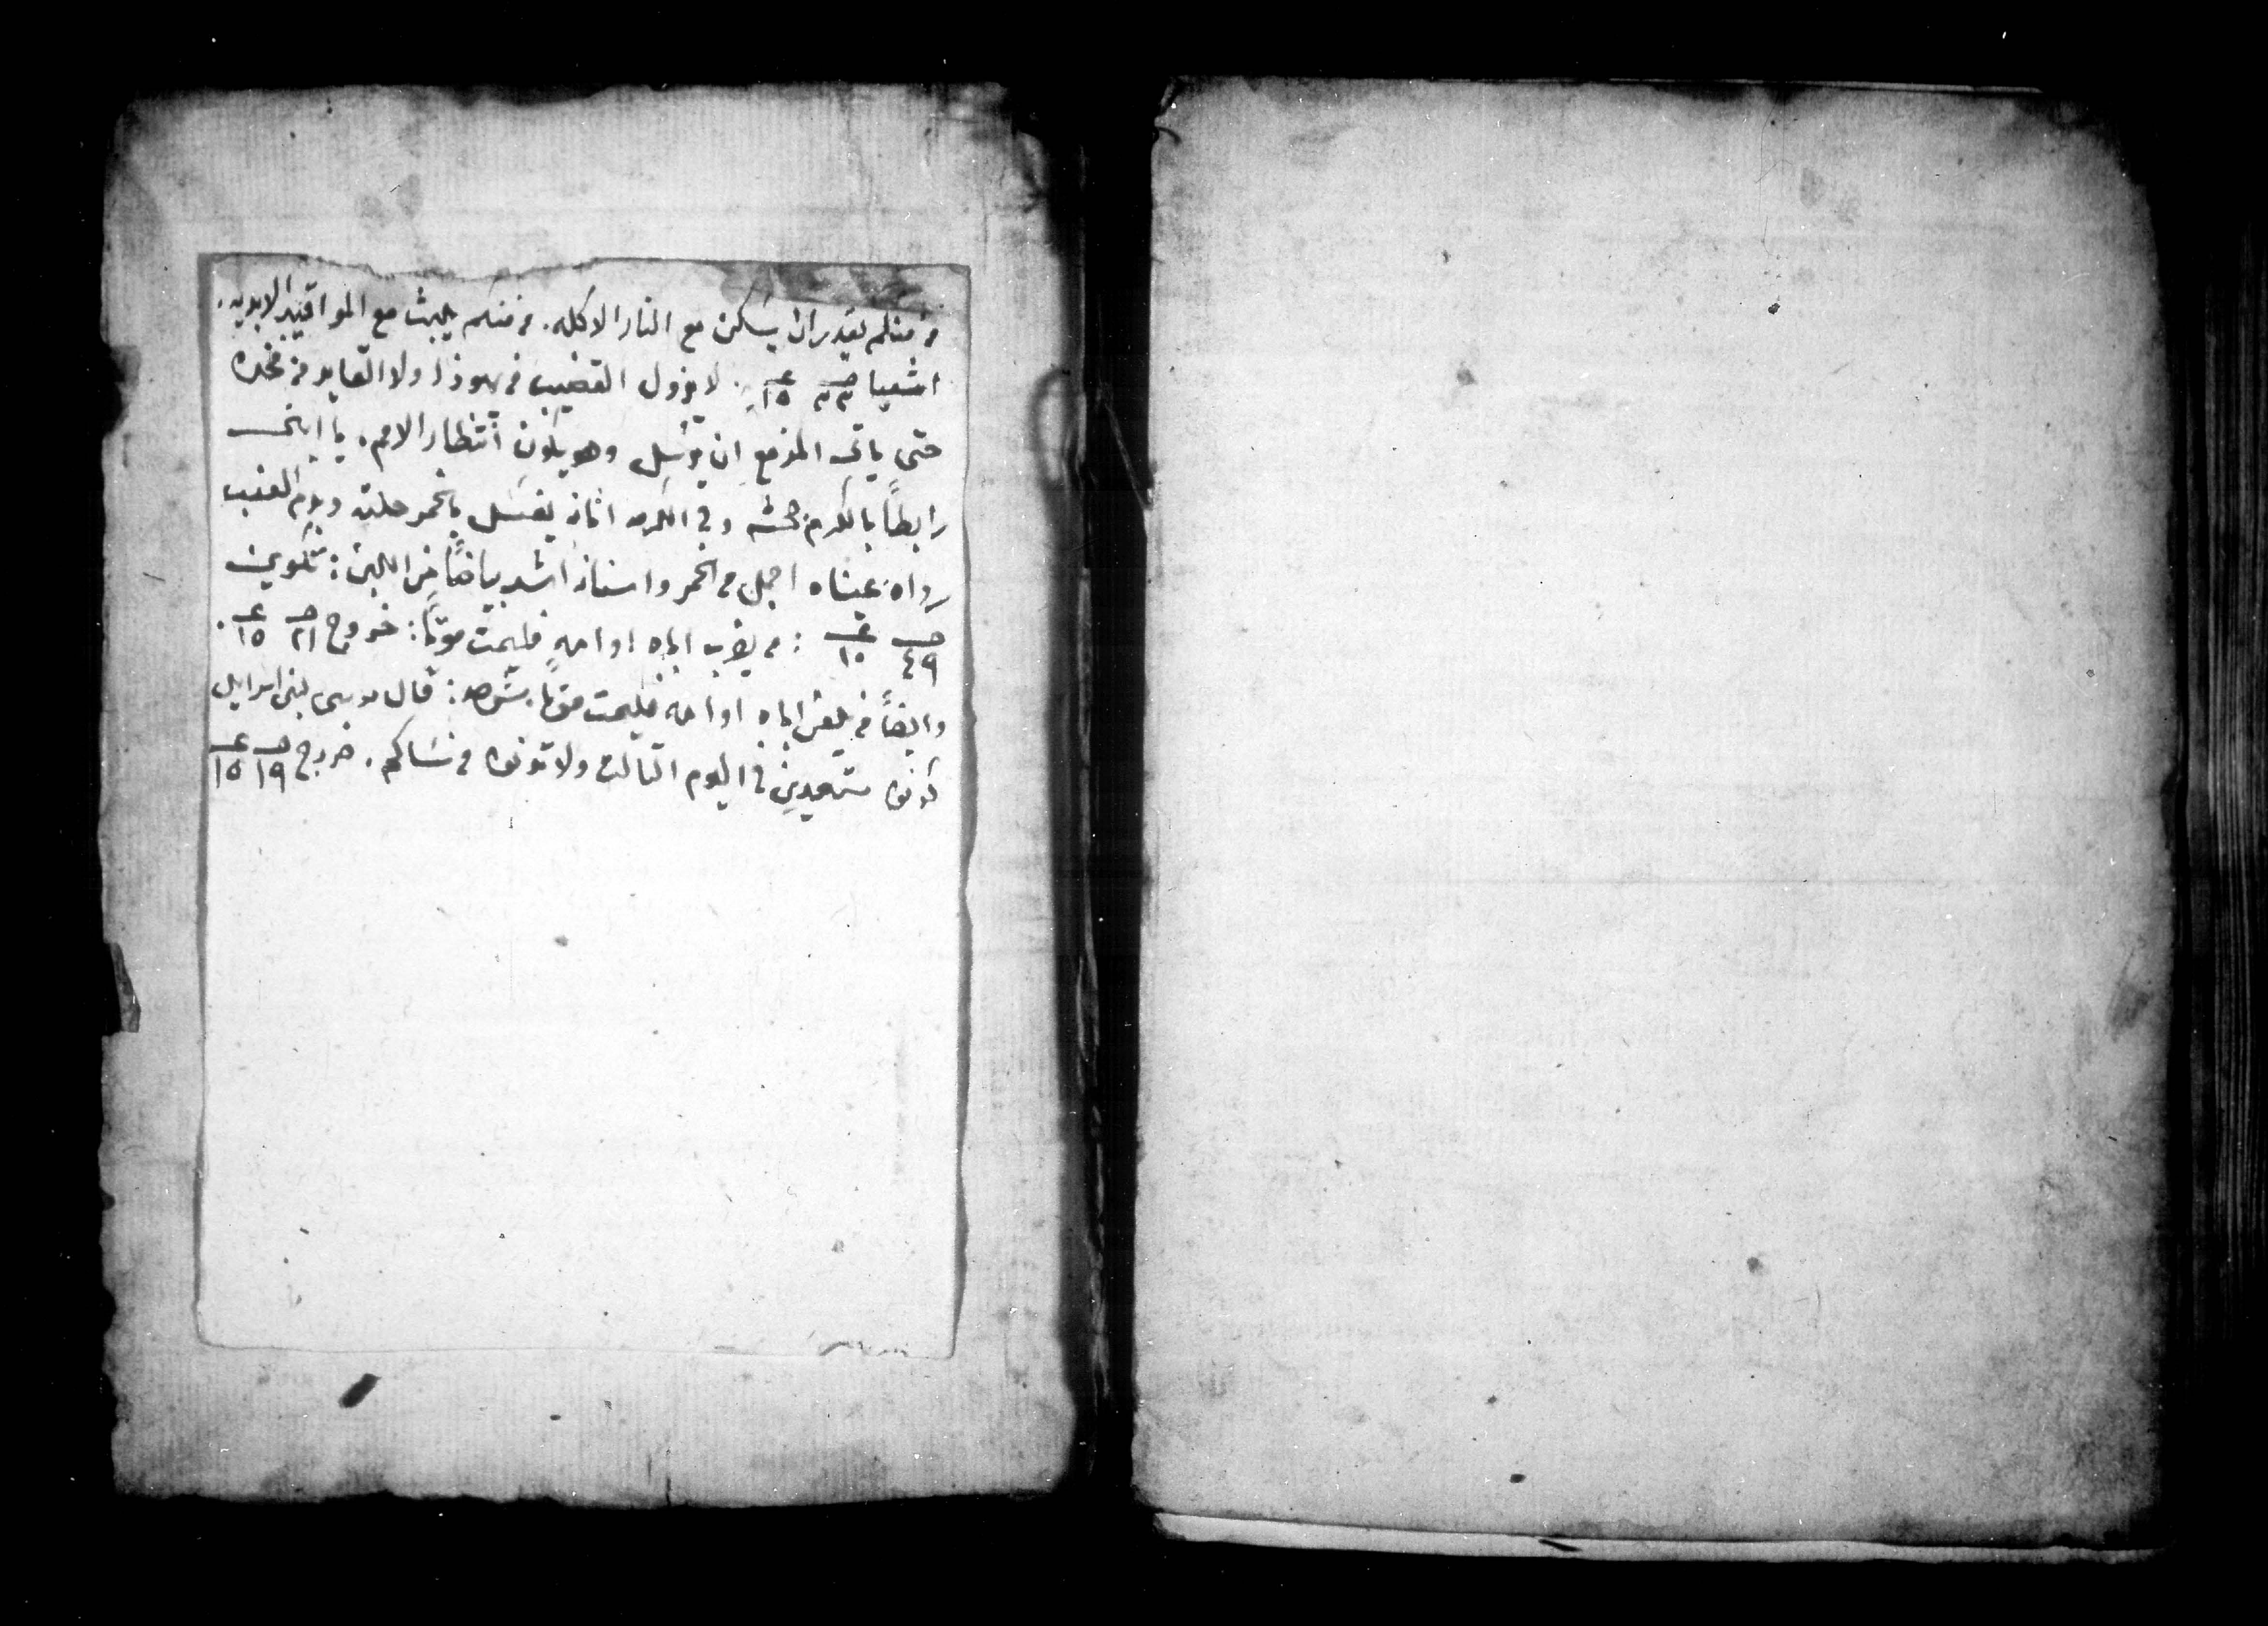 من منكم يقدر ان يسكن مع النار الاكله. من منكم يلبث مع المواقيد الابديه.
اشعيا صـ ٣٣ عـ ١٥. لا يزول القضيب من يهوذا ولا القايد من فخده
حتى ياتى المزمع ان يرسل وهو يكون انتظار الامم. يا ابنى
رابطاً بالكرم جحشه وفى الكرمه اتانه يغسل بالخمر حلته وبدم العنب
رداه عيناه اجمل من الخمر واسنانه اشد بياضاً من اللبن: تكوين
صـ ٤٩ عـ ١٠ : من يضرب اباه او امه فليمت موتاً: خروج صـ ٢١ عـ ١٥.
وايضاً من يلعن اباه او امه فليمت موتاً. قال موسى لبنى اسرايل
كونوا مستعدين فى اليوم الثالث ولا تدنوا من نساكم. خروج صـ ١٩ عـ ١٥